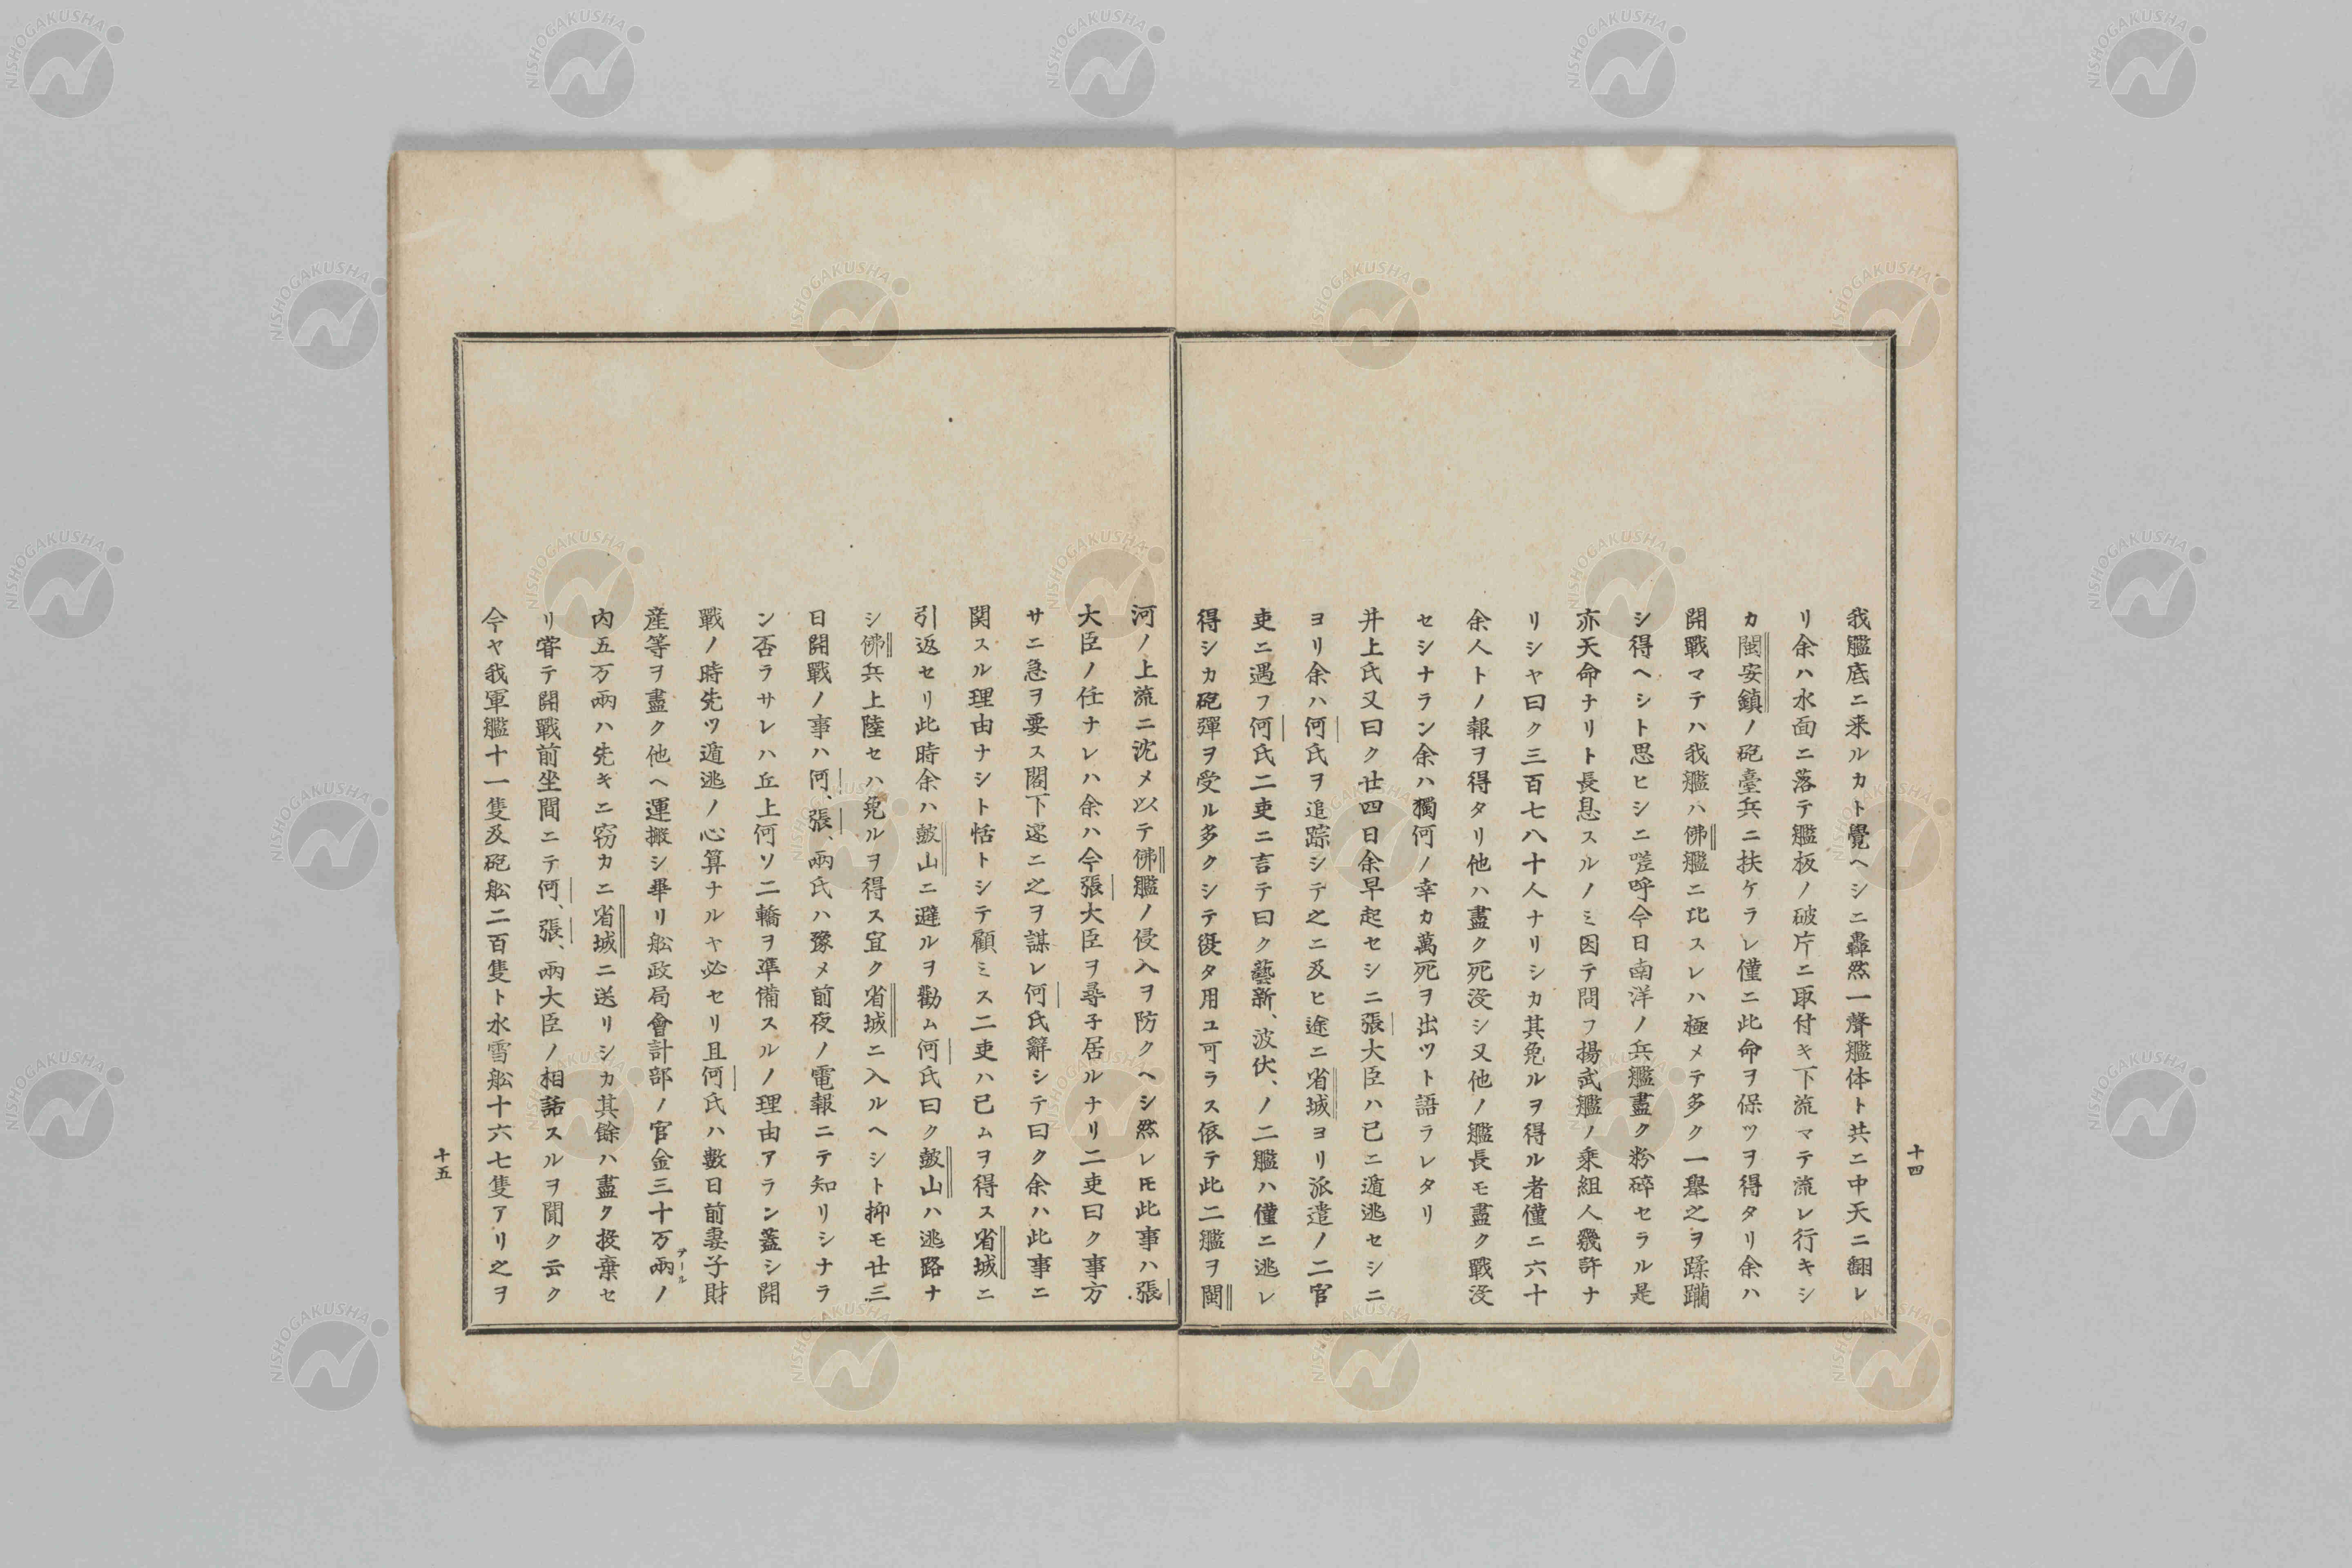 我艦底ニ来ルカト覺ヘシニ轟然一聲艦体ト共ニ中天ニ翻レ
リ余ハ水面ニ落テ艦板ノ破片ニ取付キ下流マテ流レ行キシ
カ閩安鎮ノ砲臺兵ニ扶ケラレ僅ニ此命ヲ保ツヲ得タリ余ハ
開戰マテハ我艦ハ佛艦ニ比スレハ極メテ多ク一舉之ヲ蹂躪
シ得ヘシト思ヒシニ嗟呼今日南洋ノ兵艦盡ク粉碎セラル是
亦天命ナリト長息スルノミ因テ問フ揚武艦ノ乗組人幾許ナ
リシヤ曰ク三百七八十人ナリシカ其免ルヲ得ル者僅ニ六十
余人トノ報ヲ得タリ他ハ盡ク死没シ又他ノ艦長モ盡ク戰没
セシナラン余ハ獨何ノ幸カ萬死ヲ出ツト語ラレタリ
井上氏又曰ク廿四日余早起セシニ張大臣ハ已ニ遁逃セシニ
ヨリ余ハ何氏ヲ追踪シテ之ニ及ヒ途ニ省城ヨリ派遣ノ二官
吏ニ遇フ何氏二吏ニ言テ曰ク藝新、波伏、ノ二艦ハ僅ニ逃レ
得シカ砲彈ヲ受ル多クシテ復タ用ユ可ラス依テ此二艦ヲ閩
十四
河ノ上流ニ沈メ以テ佛艦ノ侵入ヲ防クヘシ然レ𪜈此事ハ張
大臣ノ任ナレハ余ハ今張大臣ヲ尋子居ルナリ二吏曰ク事方
サニ急ヲ要ス閣下速ニ之ヲ謀レ何氏辭シテ曰ク余ハ此事ニ
関スル理由ナシト恬トシテ顧ミス二吏ハ已ムヲ得ス省城ニ
引返セリ此時余ハ皷山ニ避ルヲ勸ム何氏曰ク皷山ハ逃路ナ
シ佛兵上陸セハ免ルヲ得ス宜ク省城ニ入ルヘシト抑モ廿三
日開戰ノ事ハ何、張、兩氏ハ豫メ前夜ノ電報ニテ知リシナラ
ン否ラサレハ丘上何ソ二轎ヲ準備スルノ理由アラン蓋シ開
戰ノ時先ツ遁逃ノ心算ナルヤ必セリ且何氏ハ數日前妻子財
産等ヲ盡ク他ヘ運搬シ畢リ舩政局會計部ノ官金三十万兩テールノ
内五万兩ハ先キニ窃カニ省城ニ送リシカ其餘ハ盡ク投棄セ
リ甞テ開戰前坐間ニテ何、張、兩大臣ノ相話スルヲ聞ク云ク
今ヤ我軍艦十一隻及砲舩二百隻ト水雷舩十六七隻アリ之ヲ
十五
NISHOGAKUSHA